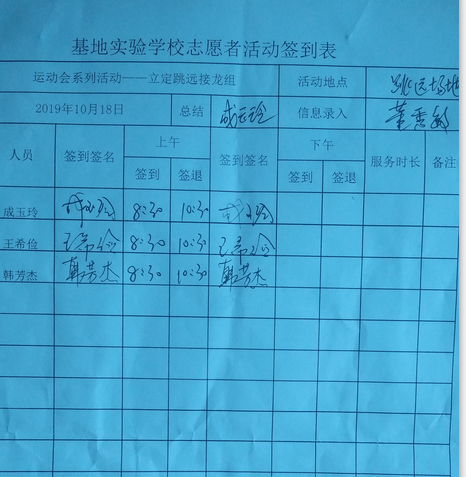 基地实验学校志愿者活动签到表
运动会系列活动——立定跳远接龙组 活动地点 跳远场地
2019年10月18日 总结 成玉玲 信息录入 董秀敏
人员 签到签名 上午 签到签名 下午 服务时长 备注
签到 签退 签到 签退
成玉玲 成玉玲 8:30 10:30 成玉玲
王希俭 王希俭 8:30 10:30 王希俭
韩芳杰 韩芳杰 8:30 10:30 韩芳杰